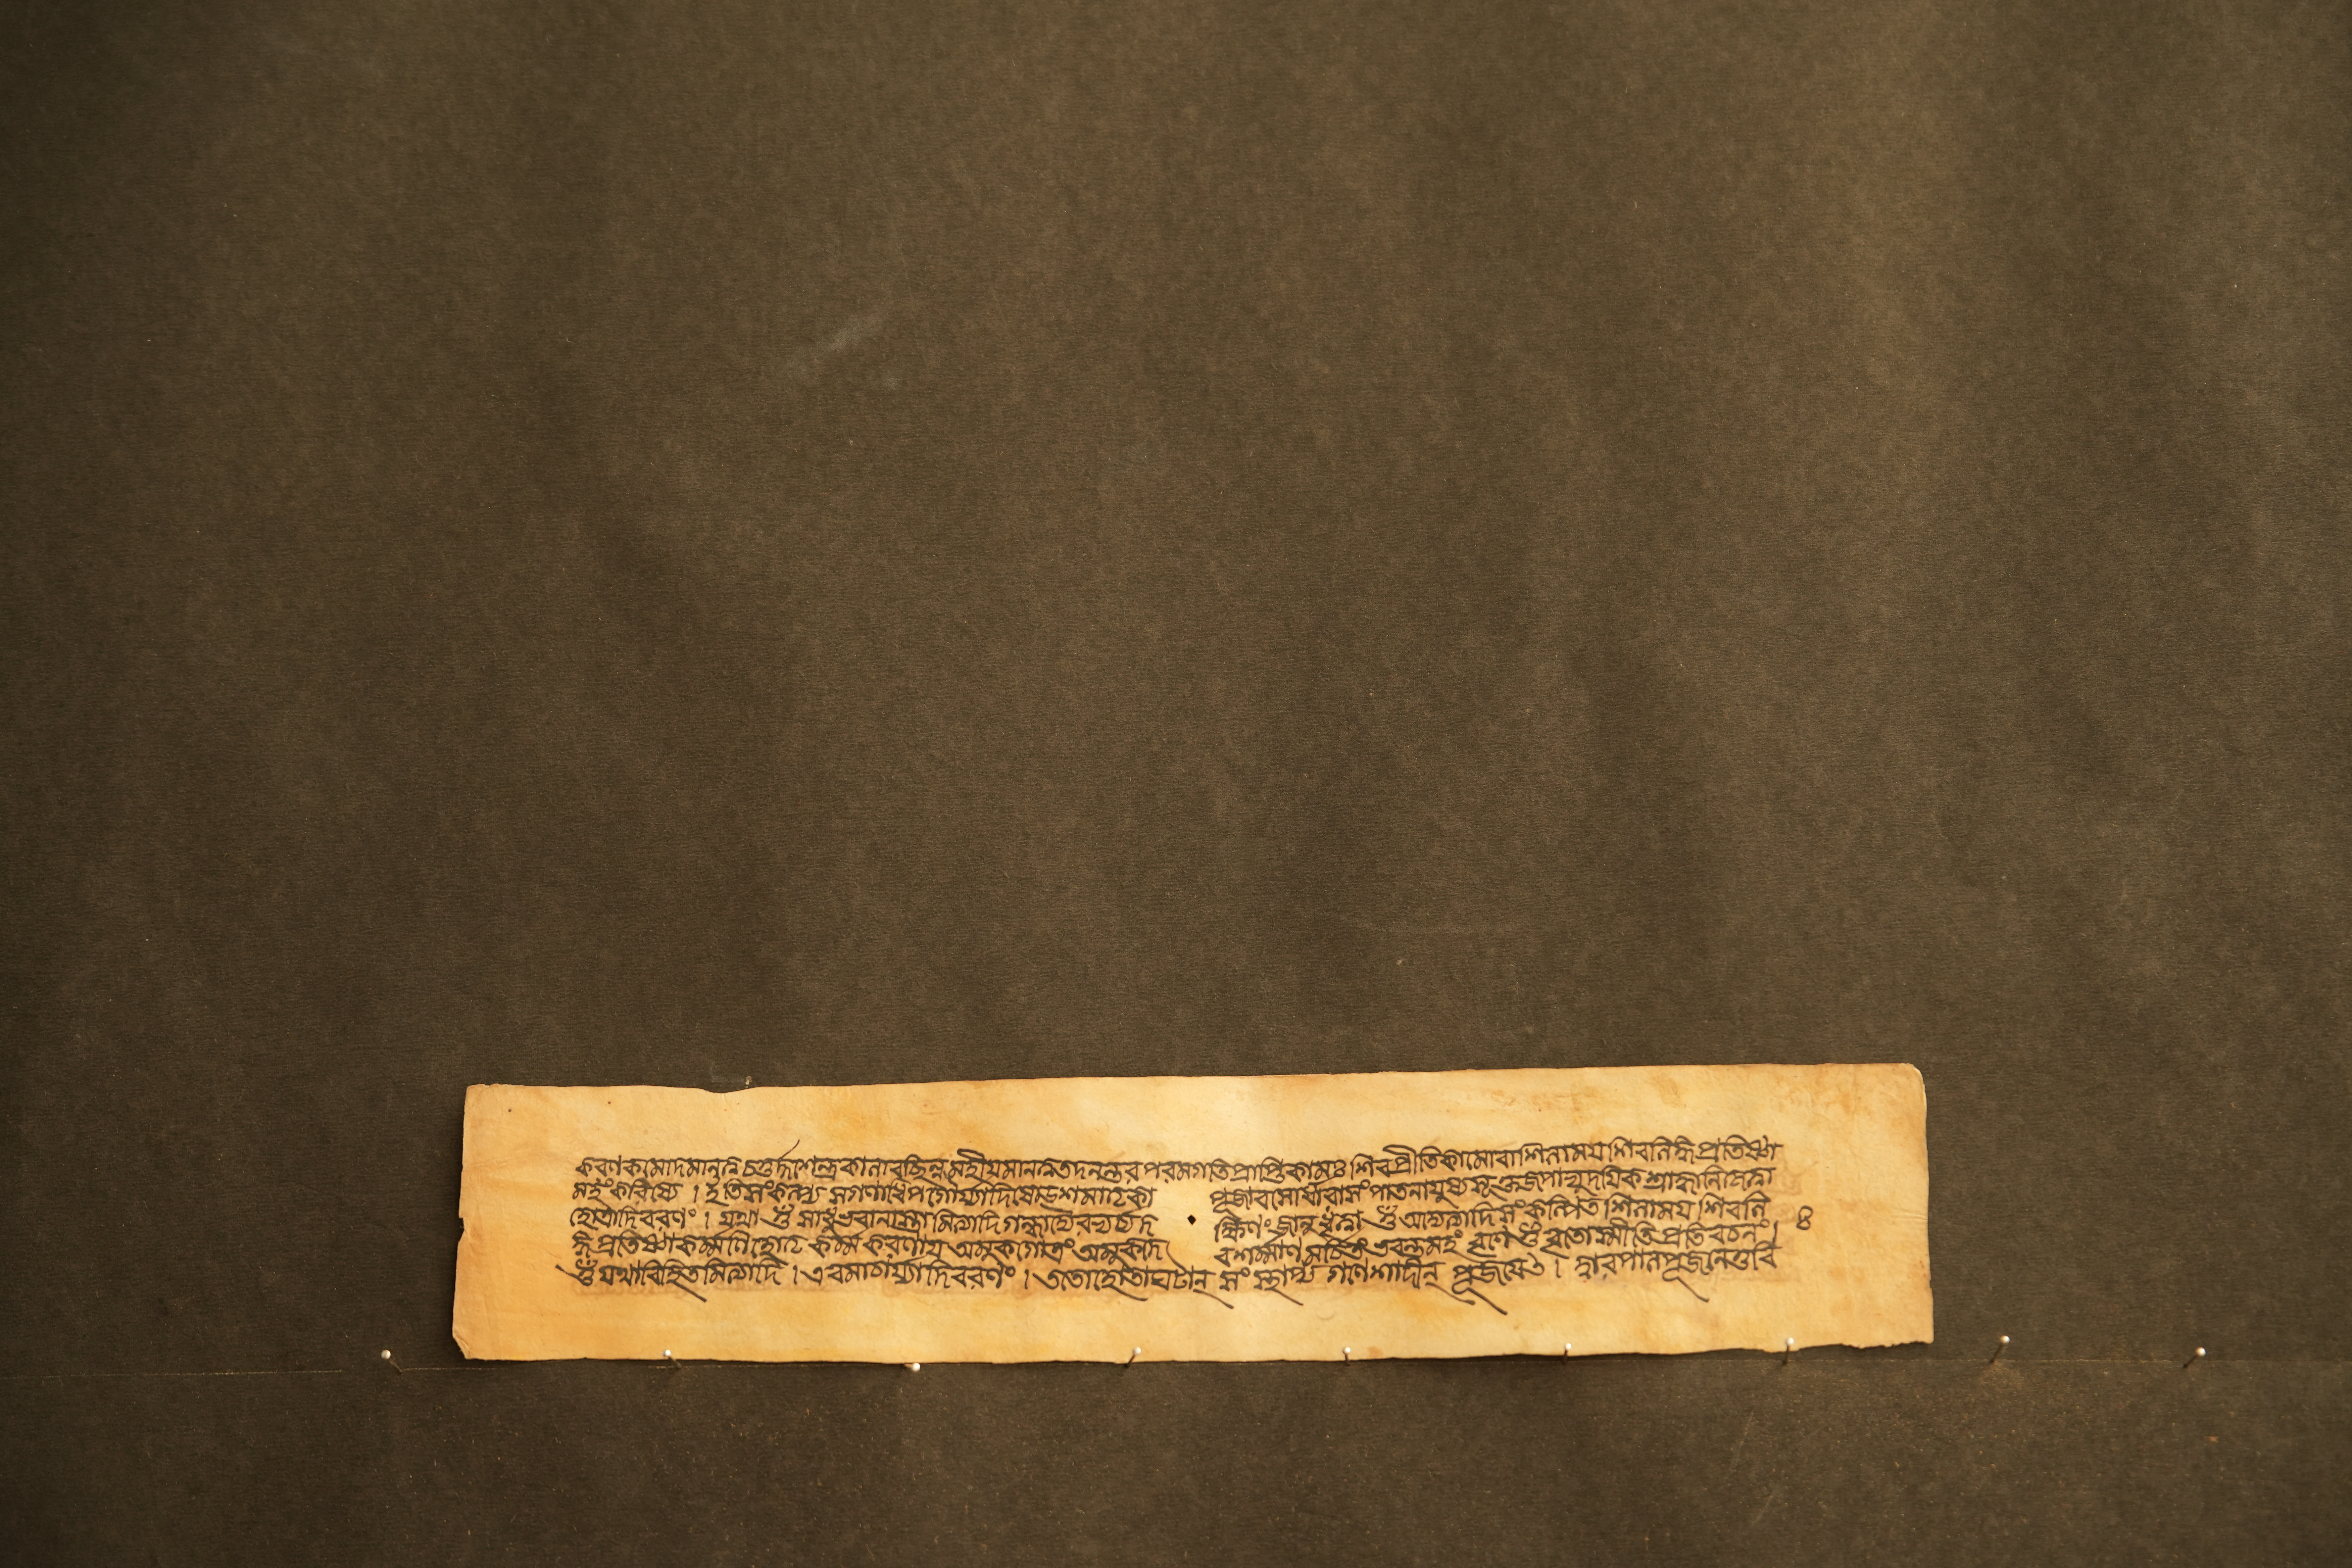 করণকমোদমানত্ব চতুর্দ্দশেন্দ্রকালাবচ্ছিন্ন মহীয়মানত্বতদনন্তর পরমগতিপ্রাপ্তিকামঃ শিবপ্রীতিকামোবা শিলাময় শিবলিঙ্গ প্রতিষ্ঠা
মহং করিষ্যে । ইতিসংকল্প্য সগণাধিপগৌর্য্যাদিষোডশমাতৃকা পূজাবসোর্ধারাসংপাতনাযুষ্যসূক্তজপাভ্যুদয়িক শ্রাদ্ধানিকৃত্বা
হোত্রাদিবরণং । যথা ওঁ সাধুভবানাস্তামিত্যাদি গন্ধাদ্যৈরভ্যর্চ্য দ ক্ষিণং জানু ধৃত্বা ওঁ অদ্যেত্যাদি সংকল্পিত শিলাময় শিবলি ৪
ঙ্গ প্রতিষ্ঠাকর্ম্মণি হোতৃ কর্ম্ম করণায় অমুকগোত্রং অমুকদে বশর্ম্মাণমর্চ্চিতং ভবন্তমহং বৃণে ওঁ বৃতোস্মীতি প্রতিবচনং।
ওঁ যথাবিহিতমিত্যাদি । এবমাচার্য্যাদিবরণং । ততোহোতাঘটান্ সংস্থাপ্য গণেশাদীন্ পূজয়েৎ । দ্বারপালপূজনেতুবি